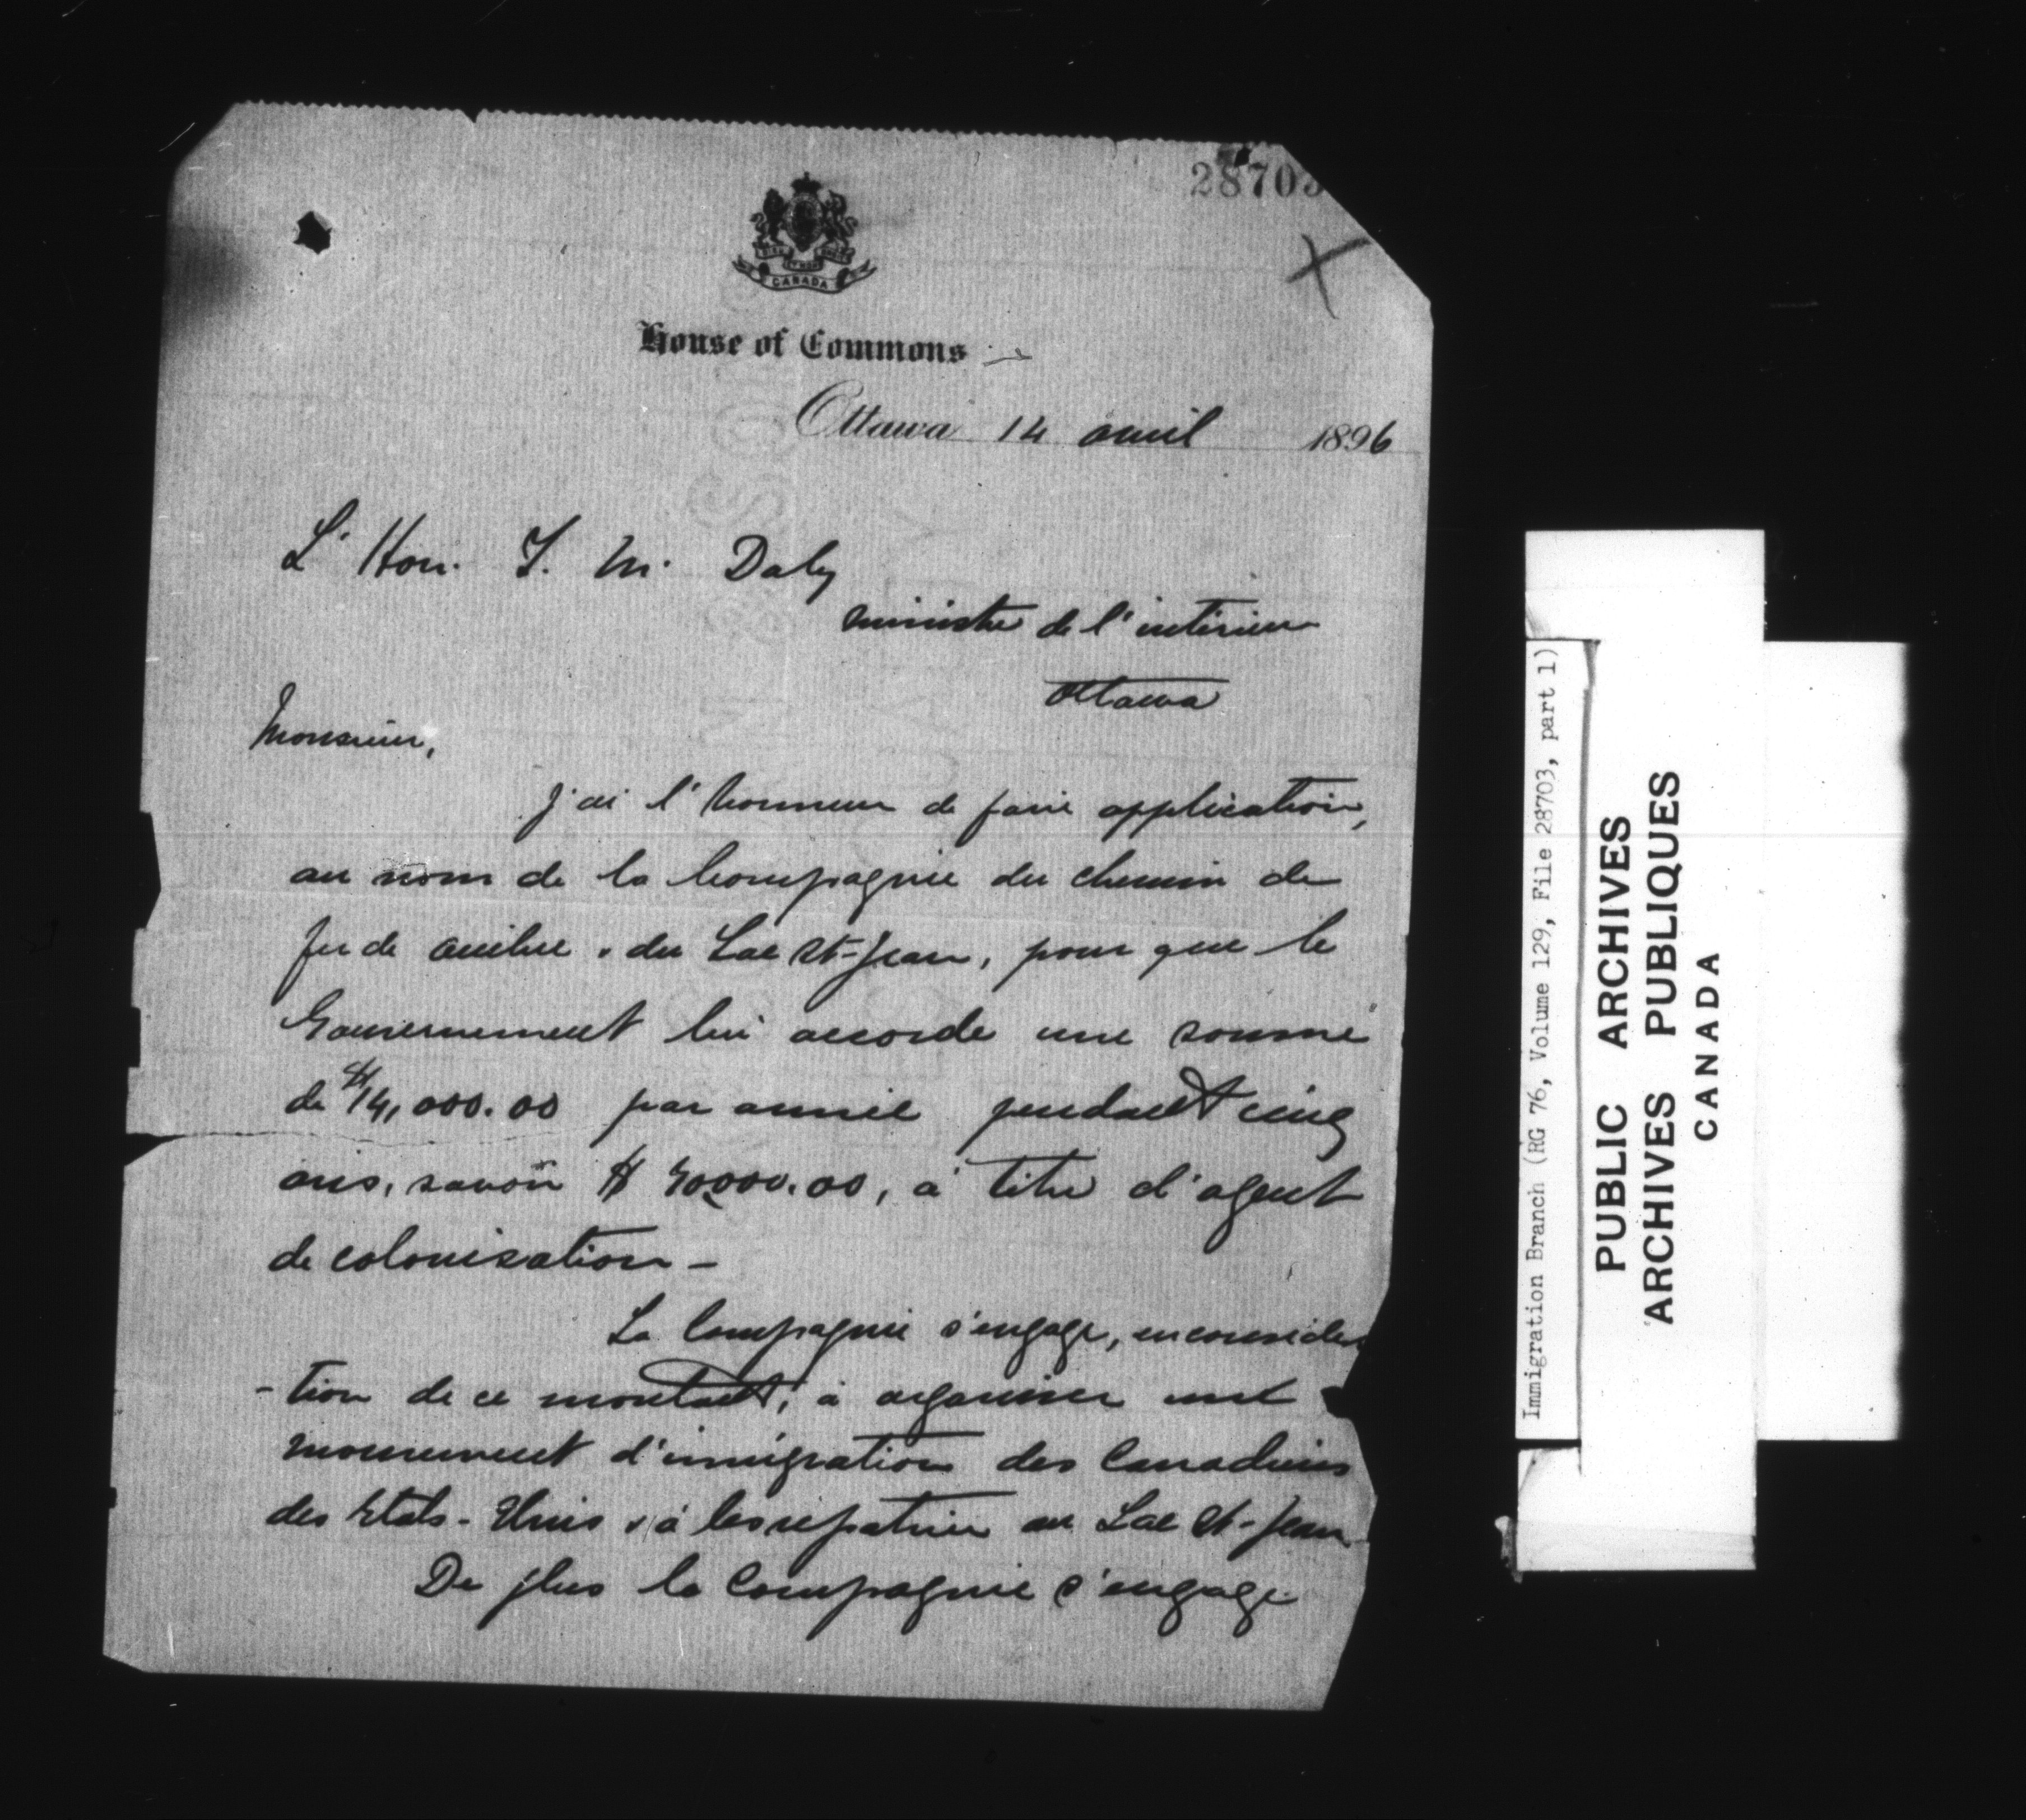 28703
CANADA
House of Commons
Ottawa 14 avril 1896
L'Hon. T. M. Daly
ministre de l'intérieur
Ottawa
Monsieur,
J'ai l'honneur de faire application,
au nom de la Compagnie du chemin de
fer de Québec & du Lac St-Jean, pour que le
Gouvernement lui accorde une somme
de $14,000.00 par année pendant cinq
ans, savoir $ 70000.00, à titre d'agent
de colonisation -
La Compagnie s'engage, en considéra
-tion de ce montant, à organiser un
mouvement d'immigration des Canadiens
des Etats-Unis & à les rapatrier au Lac St-Jean
De plus la Compagnie s'engage
Immigration Branch (RG 76, Volume 129, File 28703, part 1)
PUBLIC ARCHIVES
ARCHIVES PUBLIQUES
CANADA